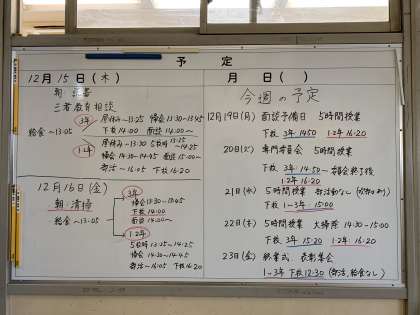 予 定
12月 15日(木)
朝 読書
三者教育相談
給食~13:05
3年
昼休み~13:25 帰会 13:30~13:45
下校 14:00 面談 14:00~
1.2年
昼休み~13:30 5校時 13:35~14:25
帰会 14:30~14:45 面談 15:00~
部活~16:05 下校 16:20
12月16日(金)
朝:清掃
給食~13:05
3年
帰会 13:30~13:45
下校 14:00
面談 14:00~
1.2年
5校時 13:35~14:25
帰会 14:30~14:45
部活~16:05 下校 16:20
月 日 ( )
今週の予定
12月19日(月) 面談予備日 5時間授業
下校 3年 14:50 1.2年 16:20
20日(火) 専門委員会 5時間授業
下校 3年 14:50~委員会終了後
1.2年 16:20
21日(水) 5時間授業 部活動なし
下校 1~3年 15:00
22日(木) 5時間授業 大掃除 14:30~15:00
下校 3年 15:20 1.2年 16:20
23日(金) 終業式 表彰集会
1~3年 下校 12:30 (部活、給食なし)